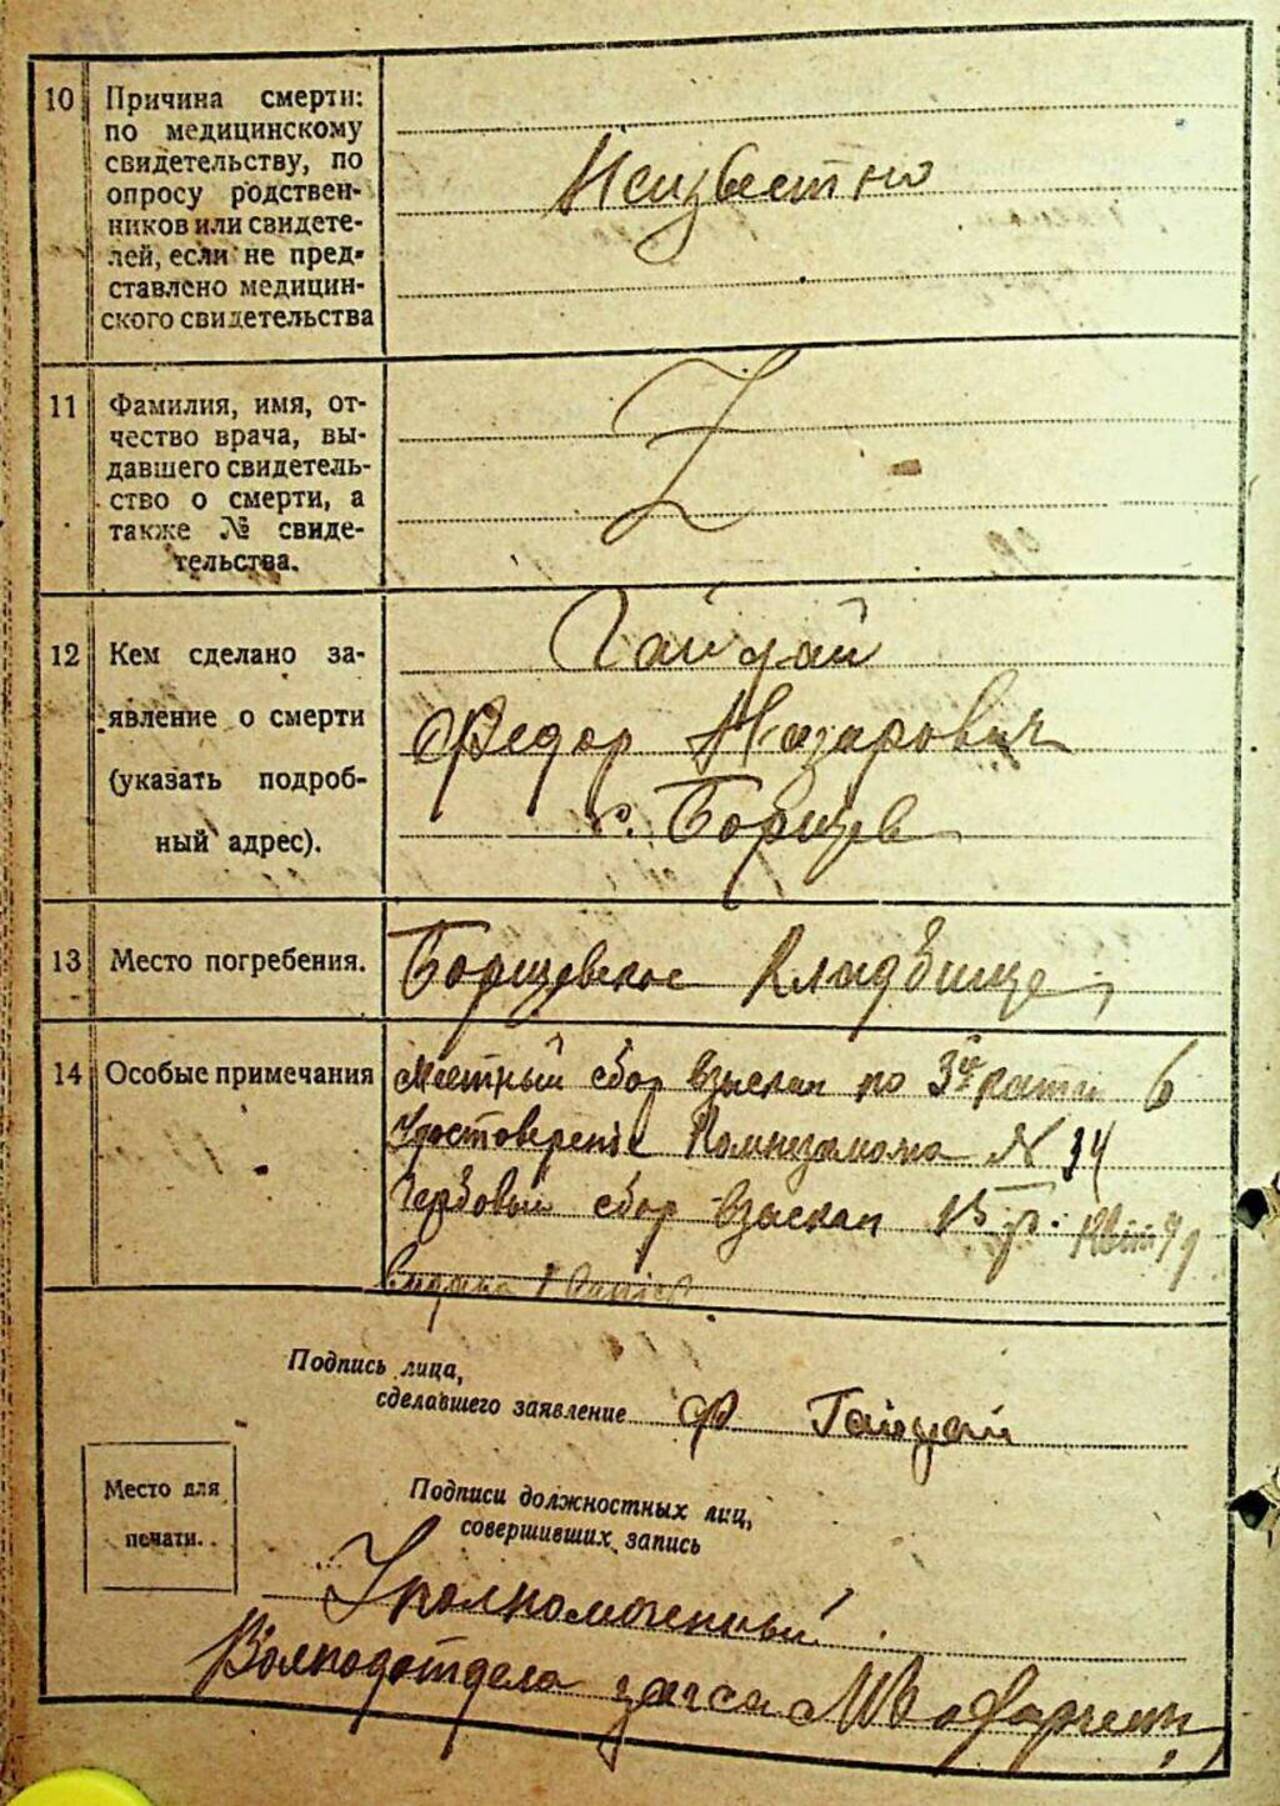 10 Причина смерти:
по медицинскому
свидетельству, по
опросу родствен-
ников или свидете-
лей, если не пред-
ставлено медицин-
ского свидетельства
Неизвестно
11 Фамилия, имя, от-
чество врача, вы-
давшего свидетель-
ство о смерти, а
также № свиде-
тельства.
Z
12 Кем сделано за-
явление о смерти
(указать подроб-
ный адрес).
Гайдай
Федор Назарович
с. Борщев
13 Место погребения.
Борщевское Кладбище
14 Особые примечания
Местный сбор взыскан по 3й
Удостоверение N 34
Гербовый сбор взыскан 15 р.
Подпись лица,
сделавшего заявление Ф. Гайдай
Место для
печати.
Подписи должностных лиц,
совершивших запись
Уполномоченный
Волподотдела загса